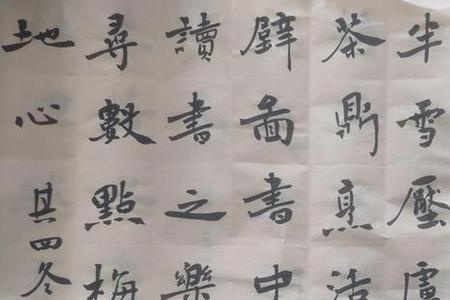 半雪壓廬
茶鼎烹活
壁圖書中
讀書之樂
尋數點梅
地心其四冬